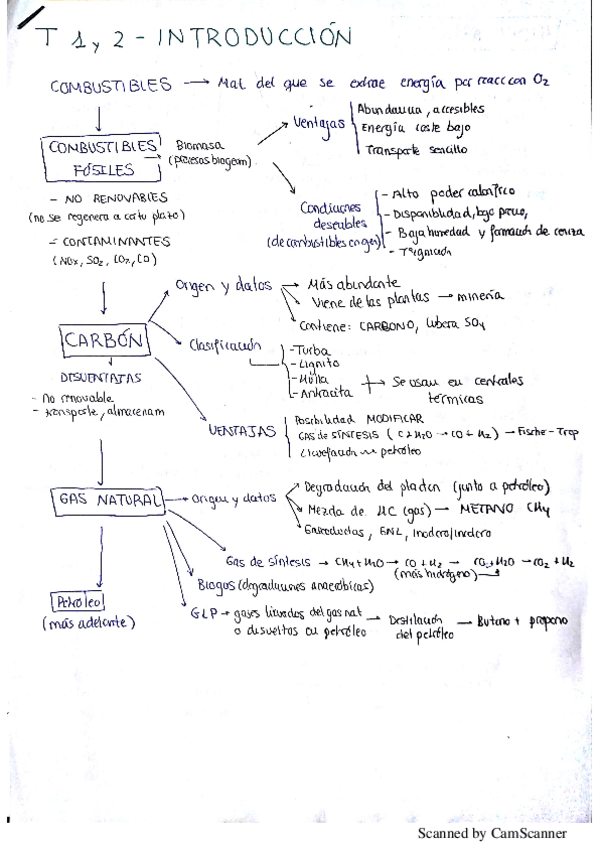 T 1 y 2 - INTRODUCCIÓN
COMBUSTIBLES → Mat del que se extrae energía por reacc con O2
COMBUSTIBLES FÓSILES
Biomasa
(procesos biogeom)
Ventajas
Abundancia, accesibles
Energía coste bajo
Transporte sencillo
- NO RENOVABLES
(no se regenera a corto plazo)
= CONTAMINANTES
(NOx, SO2, CO2, CO)
Condiciones
deseables
(de combustibles en gen)
- Alto poder calorífico
- Disponibilidad, bajo precio,
- Baja humedad y formación de ceniza
- Tª ignición
CARBÓN
Origen y datos
Más abundante
Viene de las plantas → minería
Contiene: CARBONO, libera SO4
Clasificación
- Turba
- Lignito
- Hulla
- Antracita
Se usan en centrales
térmicas
DESVENTAJAS
- no renovable
- transporte, almacenam
VENTAJAS
Posibilidad MODIFICAR
GAS de SÍNTESIS (C + H2O → CO + H2) → Fische-Trop
Licuefacción petróleo
GAS NATURAL → Origen y datos
Degradación del plancton (junto a petróleo)
Mezcla de HC (gas) → METANO CH4
Gasoductos, GNL, inodoro/incoloro
Gas de síntesis → CH4 + H2O → CO + H2 → CO + H2O → CO2 + H2
(más hidrógeno)
Biogas (degradaciones anaeróbicas)
GLP → gases licuados del gas nat
o disueltos en petróleo
→ Destilación
del petróleo
→ Butano + propano
Petróleo
(más adelante)
Scanned by CamScanner